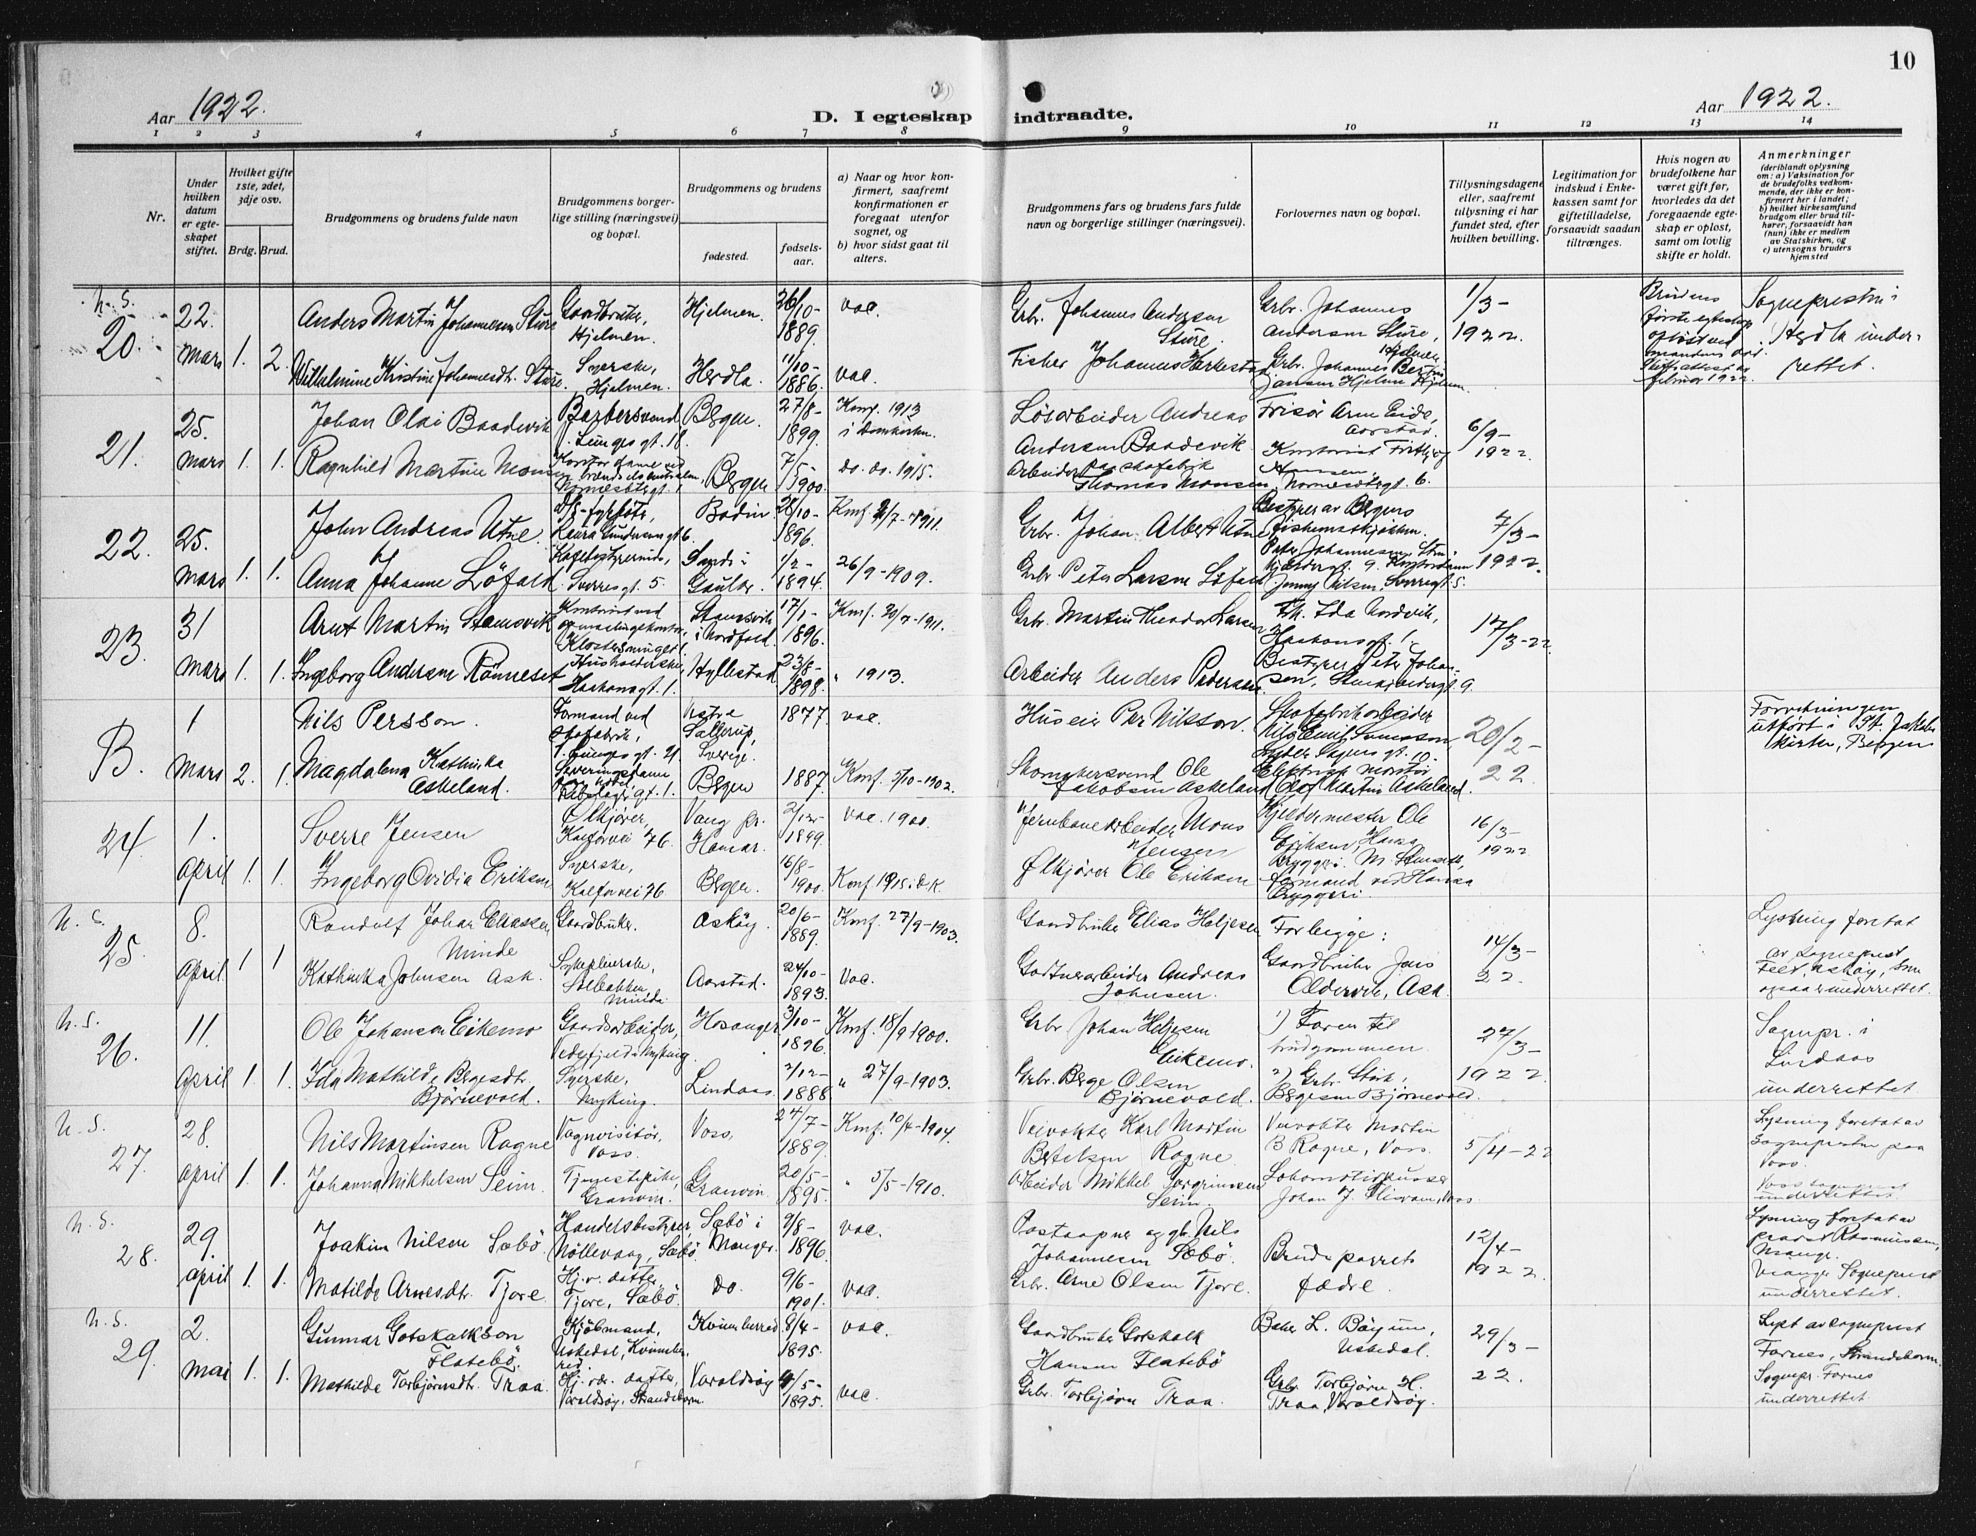 10
Aar 1922.
D. I egteskap indtraadte.
Aar 1922.
1 2 3 4 5 6 7 8 9 10 11 12 13 14
Nr.
Under hvilken datum er egteskapet stiftet.
Hvilket gifte 1ste, 2det, 3dje osv.
Brdg. Brud.
Brudgommens og brudens fulde navn
Brudgommens borgerlige stilling (næringsvei) og bopæl.
Brudgommens og brudens
fødested.
fødselsaar.
a) Naar og hvor konfirmert, saafremt konfirmationen er foregaat utenfor sognet, og
b) hvor sidst gaat til alters.
Brudgommens fars og brudens fars fulde navn og borgerlige stillinger (næringsvei).
Forlovernes navn og bopæl.
Tillysningsdagene eller, saafremt tillysning ei har fundet sted, efter hvilken bevilling.
Legitimation for indskud i Enkekassen samt for giftetilladelse, forsaavidt saadan tiltrænges.
Hvis nogen av brudefolkene har været gift før, hvorledes da det foregaaende egteskap er opløst, samt om lovlig skifte er holdt.
Anmerkninger
(deriblandt oplysning om: a) Vaksination for de brudefolks vedkommende, der ikke er konfirmert her i landet; b) hvilket kirkesamfund brudgom eller brud tilhører, forsaavidt han (hun) ikke er medlem av Statskirken, og c) utensogns bruders hjemsted
U. S.
20. 22. mars 1. 2.
Anders Martin Johannessen Sture
Gaardbruker, Hjelmen.
Hjelmen. 26/10-1889. vac.
Grb. Johannes Andersen Sture.
Grb. Johannes Andersen Sture, Hjelmen.
1/3-1922.
Brudens første egteskap opløst ved mandens død. Skifteattest
februar 1922.
Sognepresten i Herdla underrettet.
Wilhelmine Kristine Johannesdt. Sture
Syerske, Hjelmen.
Herdla. 11/10-1886. vac.
Fisker Johannes
Grb. Johannes
21. 25. mars 1. 1.
Johan Olai Baadevik
Barbersvend
Lungegt. 18.
Bergen. 27/8-1899. Konf. 1913 i Domkirken.
Løsarbeider Andreas Andersen Baadevik
Frisør Arne Eide, Aarstad.
6/9-1922
Ragnhild Martine Monsen
Bergen 7/5-1900. do. do. 1915.
Arbeider
Thomas Monsen
Kontorist Frithjof Hansen,
22. 25. mars 1. 1.
John Andreas Utne
Bodin 28/10-1896.
Grb. Johan Albert Utne
Bestyrer av Bergens
7/3-1922.
Anna Johanne Løfald
Sverresgt. 5
Sands i Gaular 1/2-1894 26/9-1909.
Grb. Peter Larsen Løfald
Peter Johannesen,
Jenny Nilsen, Sverresgt. 5.
23. 31 mars 1. 1.
Arnt Martin Stamsvik
Kontorist ved
Klostersmuget
Stamsvik i Nordfold. 17/1-1896.
Grb. Martin Theodor Larsen
Frk. Ida Nordvik, Haakonsgt. 1.
17/3-22
Ingeborg Andersen Rønneset
Husholderske, Haakonsgt. 1.
Hyllestad 23/8-1898. " 1913.
Arbeider Anders Pedersen
Bestyrer Peter Johansen,
B. 1 mars 2. 1.
Nils Persson.
Formand ved skofabrik,
Østra Sallerup, Sverige. 1877. vac.
Huseier Per Nilsson.
Skofabrikarbeider Nils Emil Svensson,
20/2-22
Forretningen utført i St. Jakobs kirke, Bergen
Magdalena Kathinka Askeland.
Bergen 1887 Konf. 5/10-1902.
Skomakersvend Ole Jakobsen Askeland
Elektrisk montør Olaf Martin Askeland.
24. 1. april 1. 1.
Sverre Jensen
Ølkjører, Kalfarvei 76.
Vang pr. Hamar. 2/12-1899. vac. 1900.
Jernbanearbeider Mons Jensen
Kjeldermester Ole Eriksen Hansa Bryggeri.
16/3-1922
Ingeborg Ovidia Eriksen
Syerske, Kalfarvei 76
Bergen. 16/8-1900. Konf 1915 i D.K.
Ølkjører Ole Eriksen
formand ved Hansa Bryggeri.
U. S.
25. 8. april 1 1
Randolf Johan Eliassen Minde
Gaardbruker.
Askøy. 20/6-1889. Konf. 27/9-1903.
Gaardbruker Elias Heljesen
Forbigge:
14/3-22.
Lysning foretat av sogneprest
Askøy, som ogsaa er underrettet.
Kathinka Johnsen Ask.
Sykepleierske, Solbakken, Minde
Aarstad. 24/10-1893. Vac.
Gartnerarbeider Andreas Johnsen.
Gaardbruker Jens Oldervik, Ask.
U. S.
26. 11. april 1. 1.
Ole Johansen Eikemo
Gaardsarbeider,
Hosanger 3/10-1896. Konf. 18/9 1900.
Grb Johan Heljesen Eikemo.
1) Faren til brudgommen.
27/3-1922.
Sognepr. i Lindaas underrettet
Ida Mathilde Bergesdt. Bjørnevold.
Syerske, Myking.
Lindaas 2/12-1888 " 27/9-1903.
Grb. Berge Olsen Bjørnevold.
2) Grb. Sterk. Bergesen Bjørnevold.
U. S.
27. 28. april 1. 1.
Nils Martinsen Rogne
Vognvisitør, Voss.
Voss. 24/7-1889. Konf. 10/4-1904.
Veivokter Karl Martin Bertelsen Rogne
Veivokter Martin B Rogne, Voss.
5/4-22
Lysning foretat av sognepresten paa Voss.
underrettet.
Johanna Mikkelsen Seim.
Tjenestepike, Granvin.
Granvin. 20/5-1895. " 5/5-1910.
Arbeider Mikkel Torgrimsen Seim
Lokomotivpusser Johan J.
U. S.
28. 29. april 1. 1.
Joakim Nilsen Sæbø.
Handelsbestyrer, Nøllevaag, Sæbø.
Sæbø i Manger. 9/8-1896. vac.
Postaapner og gb. Nils Johannesen Sæbø.
Brudeparrets fædre.
12/4-1922.
Lysning foretat av
Rasmussen, Mange.
Manger Sogneprest underrettet.
Matilde Arnesdt. Tjore.
Hj.v. datter, Tjore, Sæbø.
do. 9/6-1901. vac.
Grb. Arne Olsen Tjore.
U. S.
29. 2. mai 1. 1.
Gunnar Gotskalkson Flatebø.
Kjøbmand, Uskedal, Kvinnherred.
Kvinnherred 8/4-1895. vac.
Gaardbruker Gotskalk Hansen Flatebø
Baker L. Bøyum, Uskedal.
29/3-22.
Lyst av sogneprest Fornes, Strandebarm.
Sognepr. Fornes underrettet
Mathilde Torbjørnsdt. Traa.
Hj.vær. datter, Varaldsøy, Strandebarm.
Varaldsøy 4/5-1895. vac.
Grb. Torbjørn Traa.
Grb. Torbjørn H. Traa, Varaldsøy.